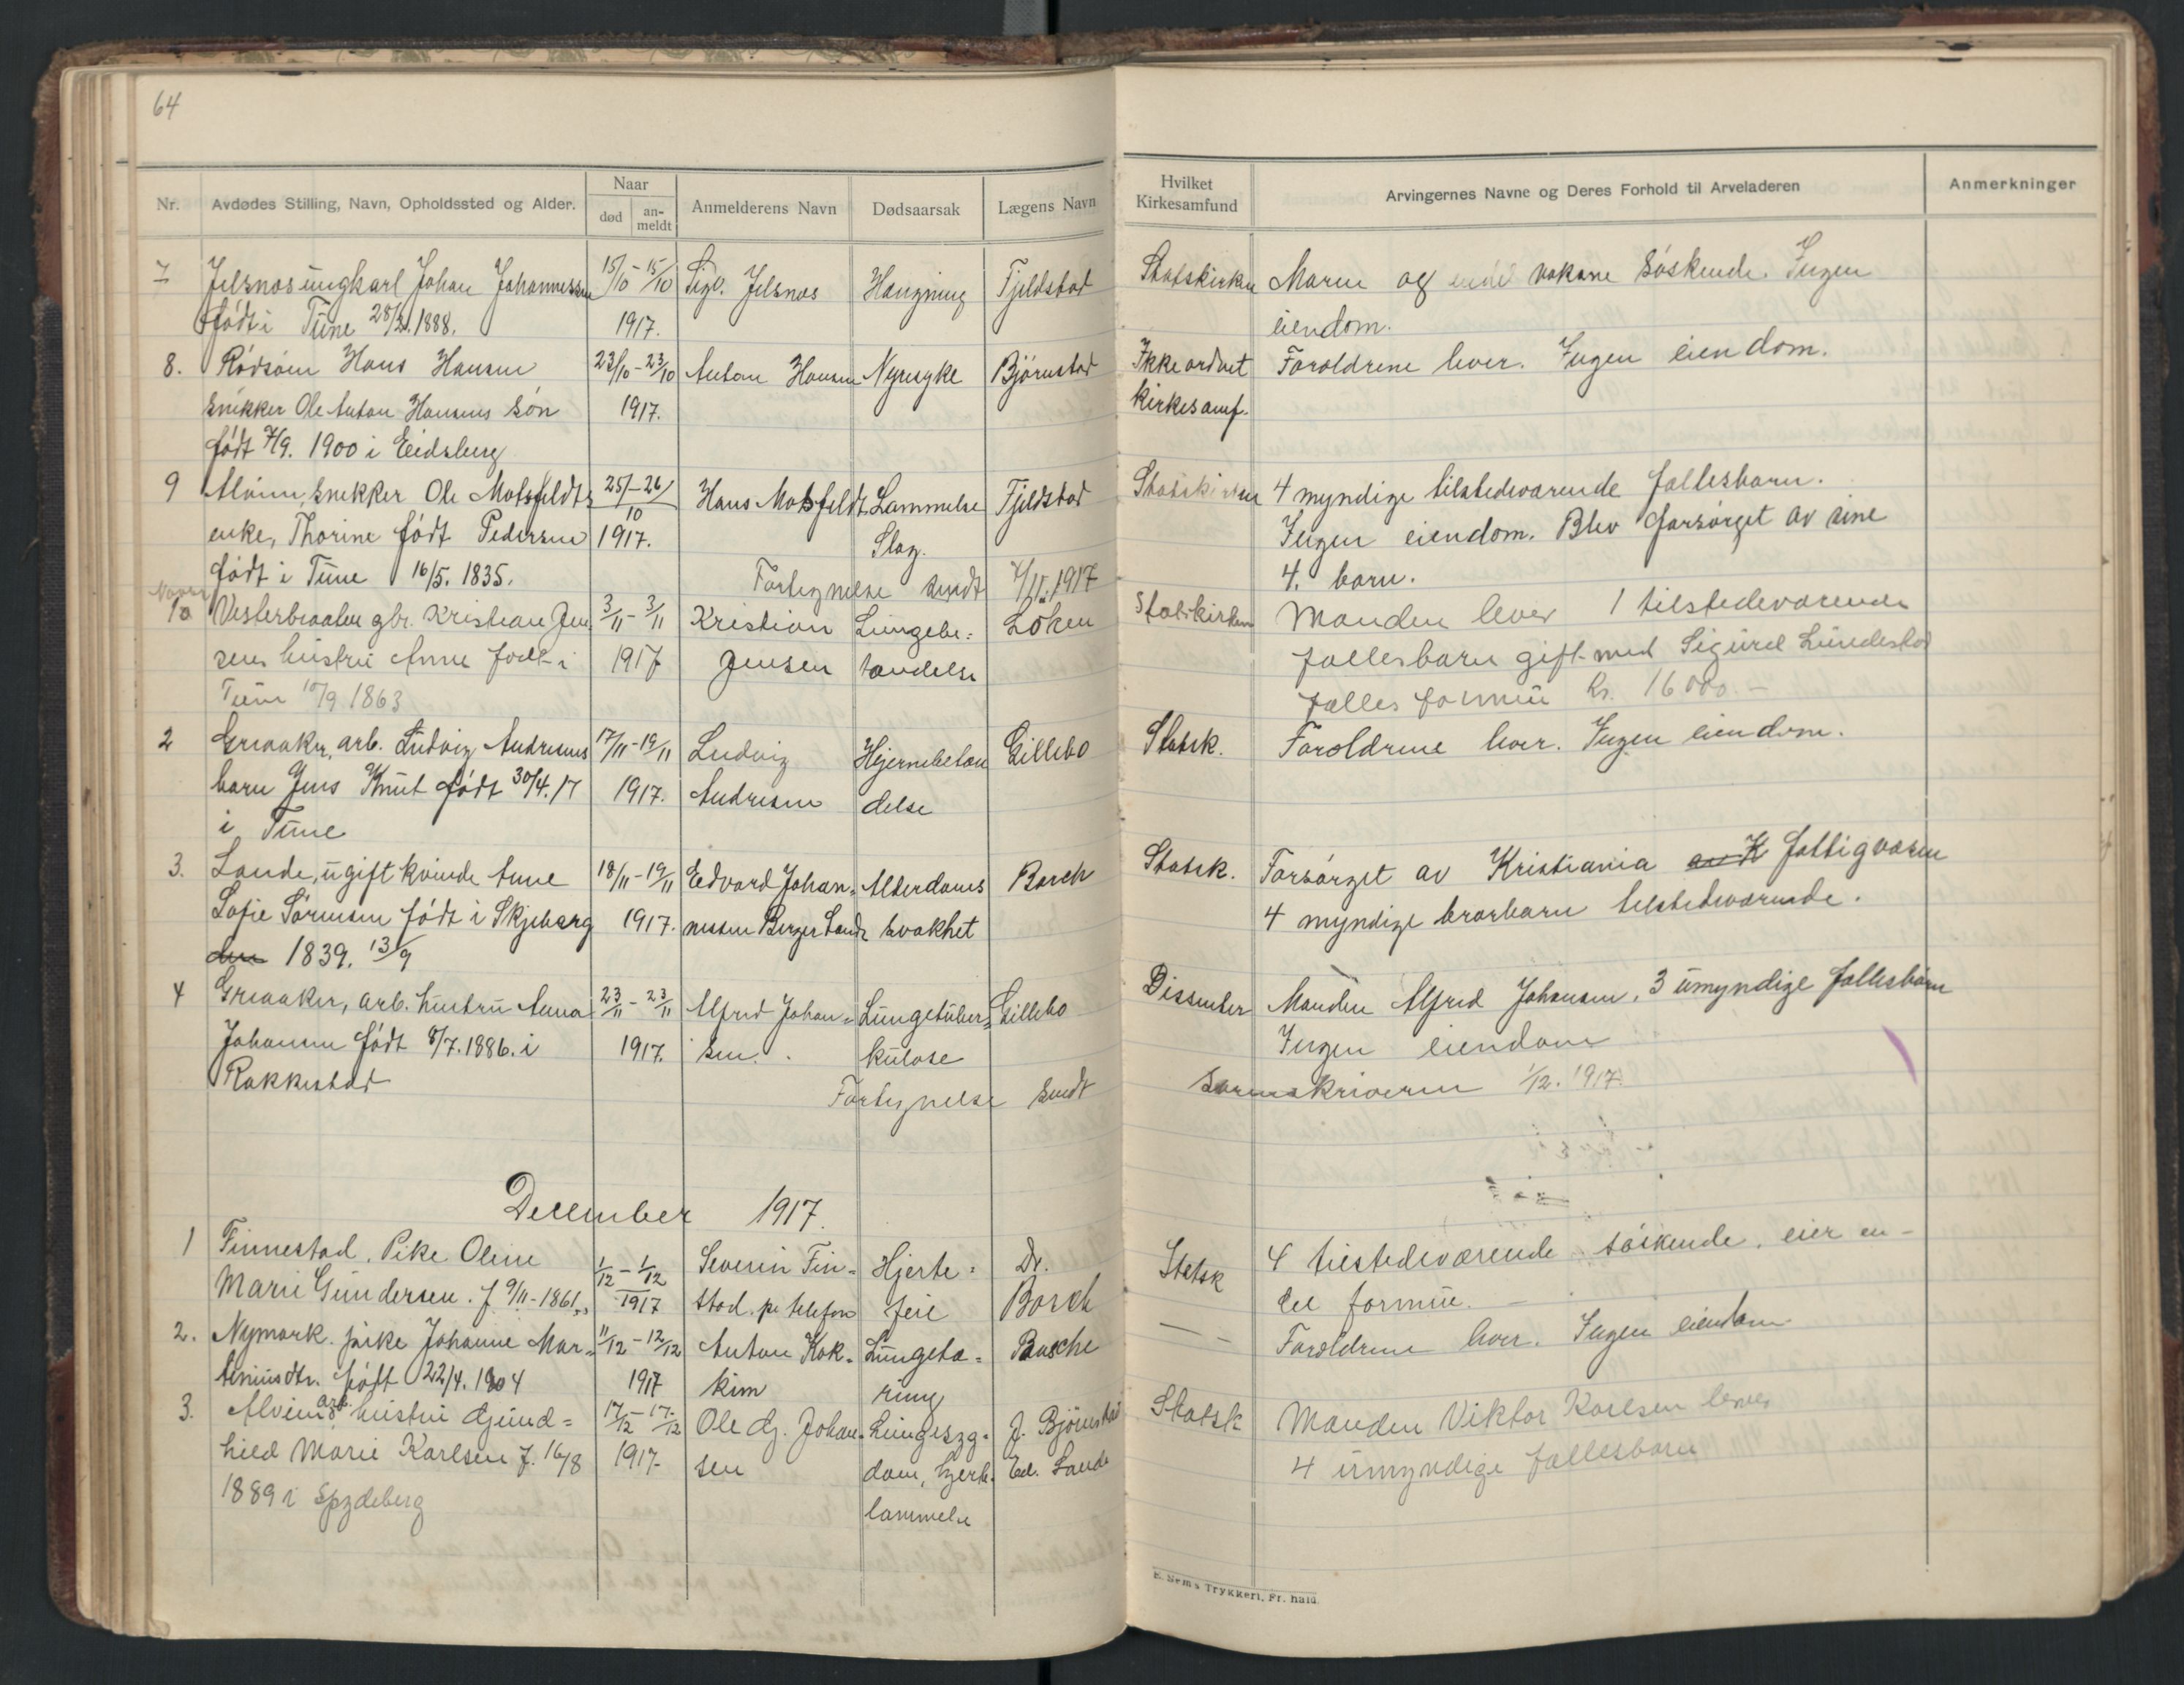 64
Nr.
Avdødes Stilling, Navn, Opholdssted og Alder.
Naar
død
an-
meldt
Anmelderens Navn
Dødsaarsak
Lægens Navn
Hvilket
Kirkesamfund
Arvingernes Navne og Deres Forhold til Arveladeren
Anmerkninger
7 Jelsnes ungkarl Johan Johannessen 15/10 - 15/10 Sigv. Jelsnes Hængning Fjeldstad Statskirken Moren og voksne søskende. Ingen
født i Tune 28/2. 1888. 1917. eiendom.
8. Rødsøen Hans Hansen 23/10 - 23/10 Anton Hansen Nyresyke Bjørnstad Ikke ordnet Foroldrene lever. Ingen eiendom.
snikker Ole Anton Hansens søn 1917. kirkesamf.
født 7/9. 1900 i Eidsberg
9 Alvim, snekker Ole Motsfeldts 25/ - 26/ 10 Hans Motsfeldt Lammelse Fjeldstad Statskirken 4 myndige tilstedeværende fællesbarn.
enke, Thorine født Pedersen 1917. Slag. Ingen eiendom. Blev forsørget av sine
født i Tune 16/5. 1835. Fortegnelse sendt 7/11.1917 4. barn.
Novr.
10 Vesterbraaten gbr. Kristian Jen 3/11 - 3/11 Kristian Lungebe= Løken Statskirken Manden lever 1 tilstedeværende
sens hustru Anne født i 1917 Jensen tændelse fællesbarn gift med Sigurd Lundestad
Tune 10/9 1863 Fælles formue kr. 16000.-
2 Greaaker, arb. Ludvig Andresens 17/11 - 19/11 Ludvig Hjernebetæn Lillebo Statsk. Foroldrene lever. Ingen eiendom.
barn Jens Knut født 30/4. 17 1917. Andresen delse
i Tune
3. Lande, ugift kvinde Anne 18/11 - 19/11 Edvard Johan= Alderdoms Borch Statsk. Forsørget av Kristiania fattigvæsen
Sofie Sørensen født i Skjeberg 1917. nessen Berger Lande svakhet 4 myndige brorbarn tilstedeværende.
den 1839. 13/9
4 Greaaker, arb. hustru Anna 23/11 - 23/11 Alfred Johan= Lungetuber= Lillebo Dissenter Manden Alfred Johansen, 3 umyndige fællesbarn
Johansen født 8/7. 1886. i 1917. sen. kulose Ingen eiendom
Rakkestad Fortegnelse sendt Sorenskriveren 1/12. 1917.
December 1917.
1 Finnestad. Pike Oline 1/12 - 1/12 Severin Fin= Hjerte= Dr. Statsk 4 tilstedeværende søskende, eier en-
Marie Gundersen. f 9/11 - 1861. 1917 stad. pr telefon feil Borch del formue.
2. Nymark. pike Johanne Mar= 11/12 - 12/12 Anton Kok= Lungetæ= Basche — – Foroldrene lever. Ingen eiendom
tiniusdtr. født 22/4. 1904 1917 kim ring
3. Alvim arb. hustru Gund= 17/12 - 17/12 Ole Gj. Johan= Lungesyg= J. Bjørnstad Statsk Manden Viktor Karlsen lever
hild Marie Karlsen f. 16/8 1917. sen dom, hjerte= Ed. Lande 4 umyndige fællesbarn
1889 i Spydeberg lammelse
E. Sems Trykkeri, Fr.hald.